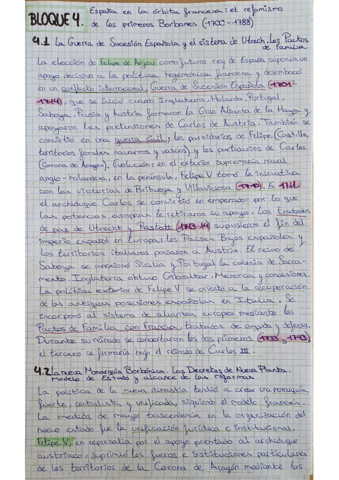 España en la órbita francesa: el reformismo
BLOQUE 4. de los primeros Borbones (1700-1788)
4.1 La Guerra de Sucesión Española y el sistema de Utrech, los Pactos
de Familia
La elección de Felipe de Anjou como futuro rey de España suponía un
apoyo decisivo a la política hegemónica francesa y desembocó
en un conflicto internacional, Guerra de Sucesión Española (1701-
1714), que se inició cuando Inglaterra, Holanda, Portugal,
Saboya, Prusia y Austria formaron la Gran Alianza de la Haya y
apoyaron las pretensiones de Carlos de Austria. También se
convirtió en una guerra civil, los partidarios de Felipe (Castilla,
territorios forales navarros y vascos), y los partidarios de Carlos
(Corona de Aragón). Evolución: en el exterior supremacía naval
anglo-holandesa, en la península, Felipe V tomó la iniciativa
con las victorias de Brihuega y Villaviciosa (1710). En 1711
el archiduque Carlos se convirtió en emperador, por lo que
las potencias europeas le retiraron su apoyo. Los tratados
de paz de Utrecht y Rastatt (1713-14) supusieron el fin del
imperio español en Europa: los Países Bajos españoles y
los territorios italianos pasaron a Austria. El reino de
Saboya se anexionó Sicilia y Portugal la colonia de Sacra-
mento. Inglaterra obtuvo Gibraltar, Menorca y concesiones.
La política exterior de Felipe V se orientó a la recuperación
de las antiguas posesiones españolas en Italia. Se
incorporó al sistema de alianzas europeo mediante los
Pactos de Familia con Francia: tratados de ayuda y defensa.
Durante su reinado se concertaron los dos primeros (1733 y 1743)
el tercero se firmaría bajo el reinado de Carlos III.
4.2 La nueva Monarquía Borbónica. Los Decretos de Nueva Planta.
Modelo de Estado y alcance de las reformas
La política de la nueva dinastía tendió a crear una monarquía
fuerte, centralista, y unificada, siguiendo el modelo francés.
La medida de mayor trascendencia en la organización del
nuevo estado fue la unificación jurídica e institucional.
Felipe V, en represalia por el apoyo prestado al archiduque
austríaco, suprimió los fueros e instituciones particulares
de los territorios de la Corona de Aragón mediante los